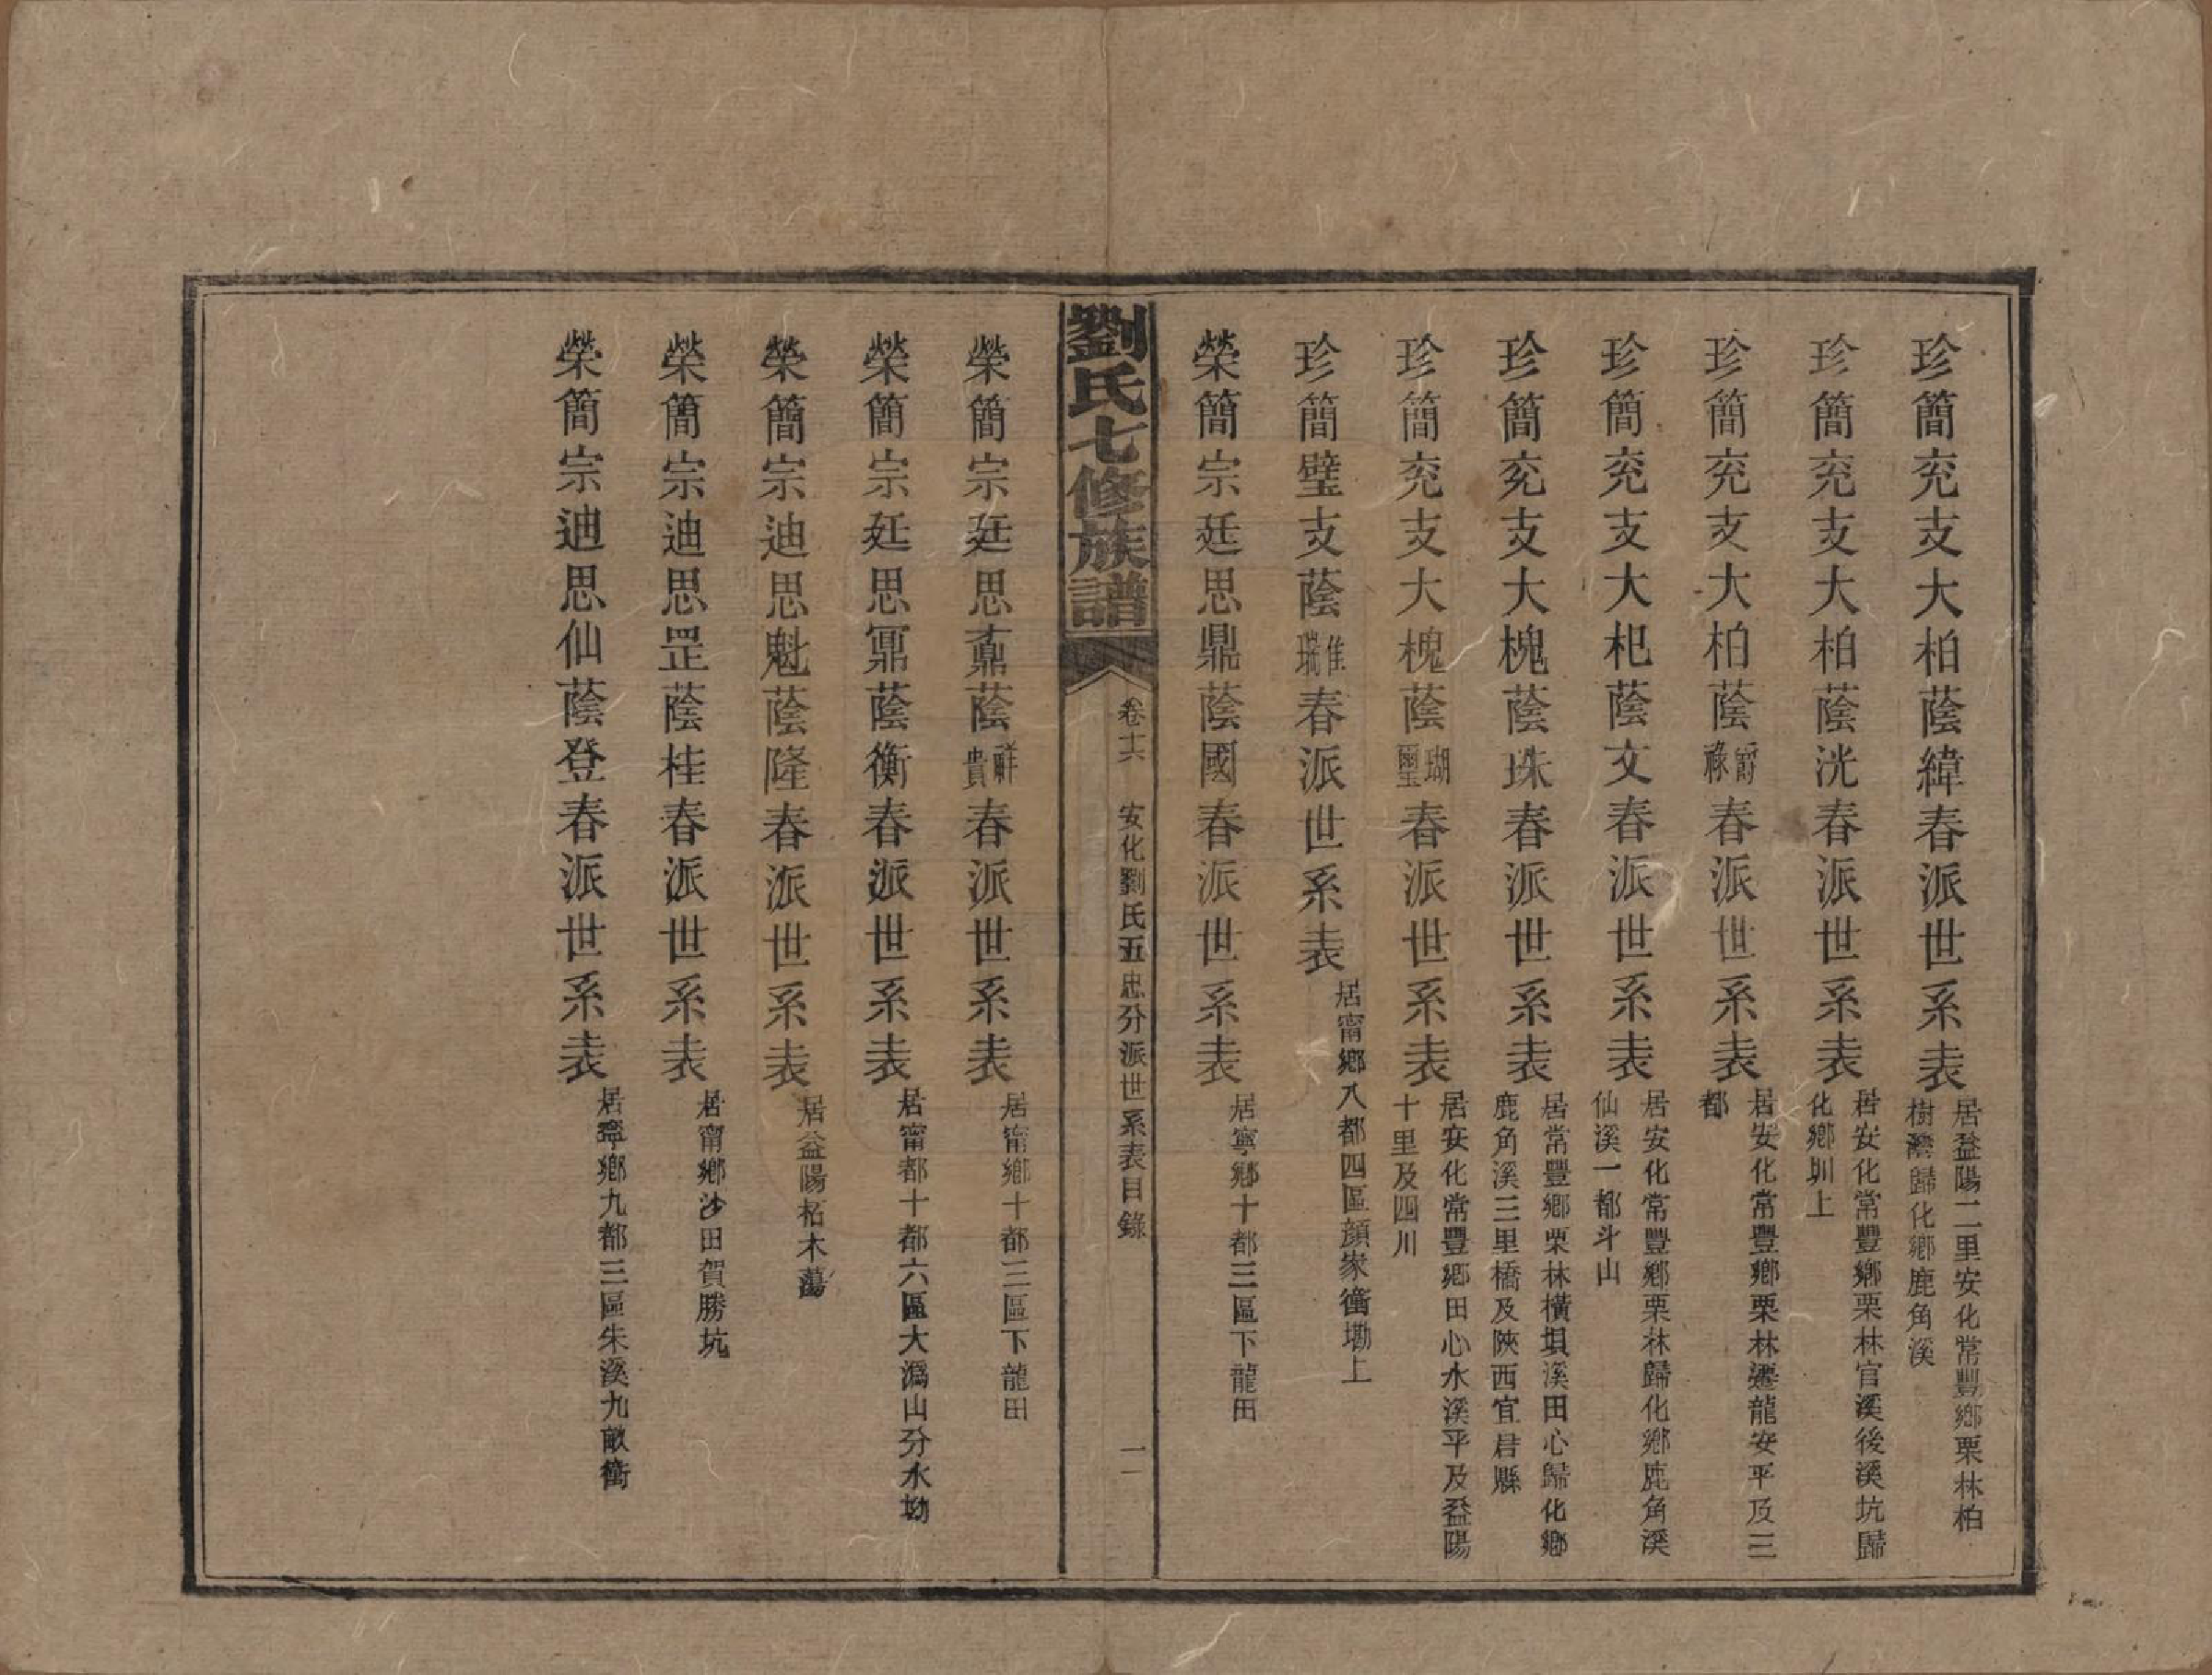 珍簡兖支大柏蔭緯春派世系表居益陽二里安化常豐鄉栗林柏樹灣歸化鄉鹿角溪
珍簡兖支大柏蔭洸春派世系表居安化常豐鄉栗林官溪後溪坑歸化鄉圳上
珍簡兖支大柏蔭爵祿春派世系表居安化常豐鄉栗林遷龍安平及三都
珍簡兖支大杞蔭文春派世系表居安化常豐鄉栗林歸化鄉鹿角溪仙溪一都斗山
珍簡兖支大槐蔭珠春派世系表居常豐鄉栗林橫垻溪田心歸化鄉鹿角溪三里橋及陝西宜君縣
珍簡兖支大槐蔭瑚璽春派世系表居安化常豐鄉田心水溪平及益陽十里及四川
珍簡璧支蔭惟瑞春派世系表居甯鄉八都四區顔家衝塅上
榮簡宗廷思鼎蔭國春派世系表居寧鄉十都三區下龍田
劉氏七修族譜
卷十六 安化劉氏五忠分派世系表目錄 一
榮簡宗廷思鼒蔭祥貴春派世系表居甯鄉十都三區下龍田
榮簡宗廷思鼏蔭衡春派世系表居甯都十都六區大溈山分水坳
榮簡宗迪思魁蔭隆春派世系表居益陽柘木蕩
榮簡宗迪思罡蔭桂春派世系表居甯鄉沙田賀勝坑
榮簡宗迪思仙蔭登春派世系表居寧鄉九都三區朱溪九畝衝